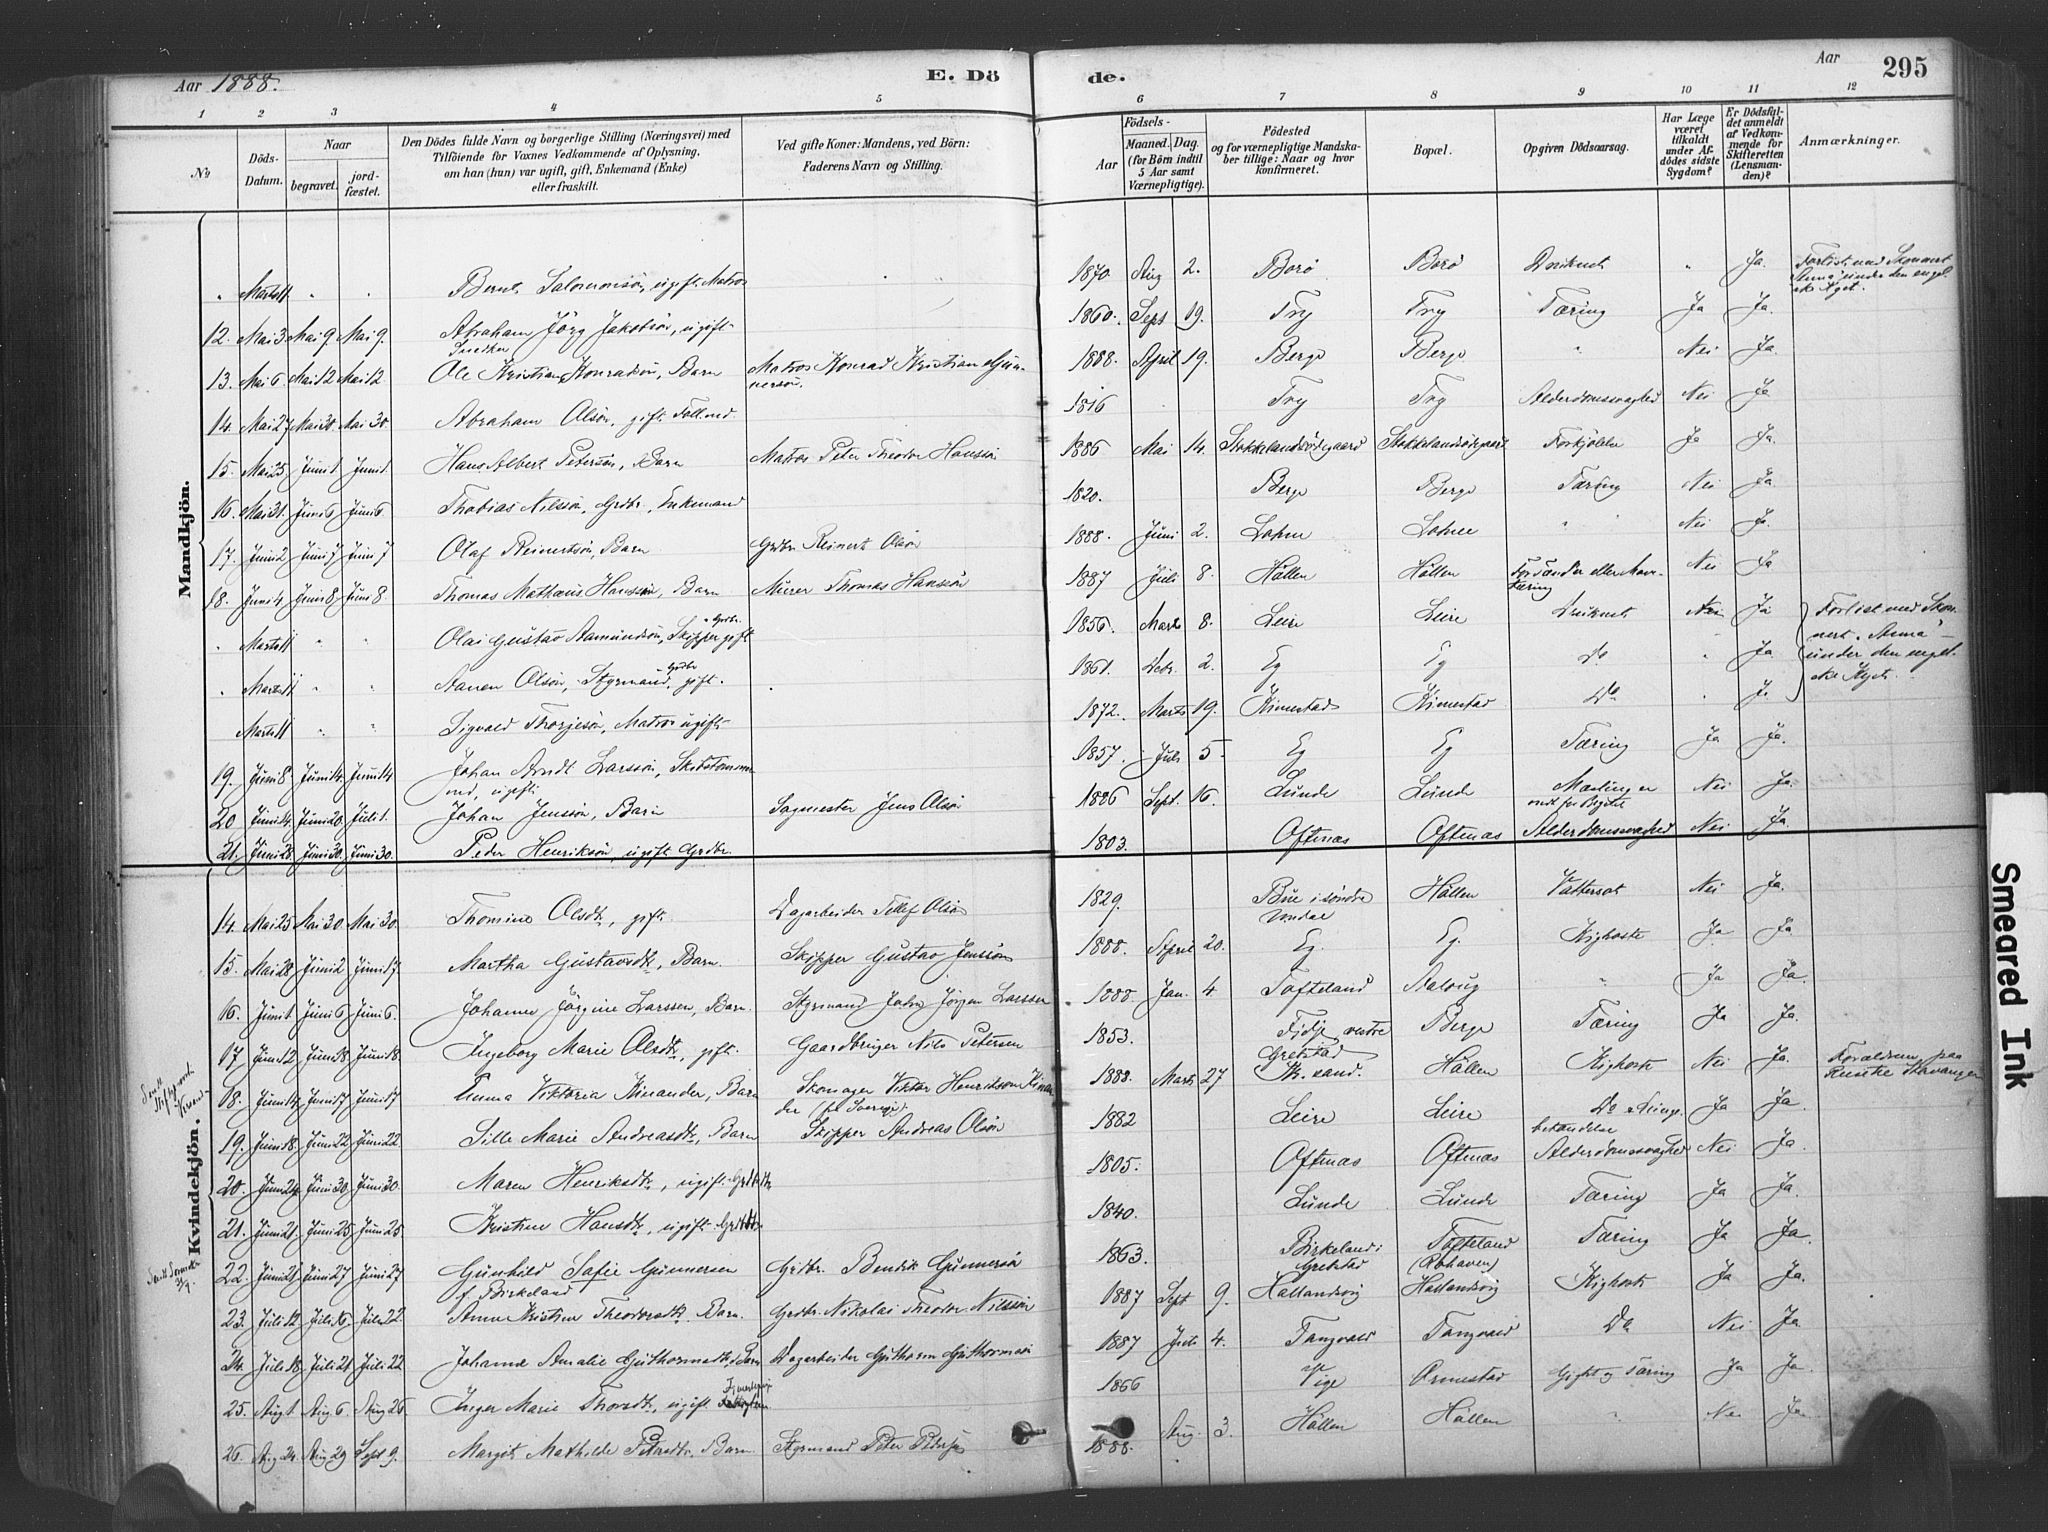 Aar 1888. E. Dö de. Aar 295
1 2 3 4 5 6 7 8 9 10 11 12
№ Döds-Datum. Naar begravet. jord-fæstet. Den Dödes fulde Navn og borgerlige Stilling (Næringsvei) med Tilföiende for Voxnes Vedkommende af Oplysning, om han (hun) var ugift, gift, Enkemand (Enke) eller fraskilt. Ved gifte Koner: Mandens, ved Börn: Faderens Navn og Stilling. Födsels- Aar Maaned. Dag. (for Börn indtil 5 Aar samt Værnepligtige). Födested og for værnepligtige Mandskaber tillige: Naar og hvor konfirmeret. Bopæl. Opgiven Dödsaarsag. Har Læge været tilkaldt under Afdödes sidste Sygdom? Er Dödsfaldet anmeldt af Vedkommende for Skifteretten (Lensmanden)? Anmærkninger.
Mandkjön.
" Marts 11 " " Bernt Salomonsön, ugift Matros 1870. Aug 2. Borö Borö Druknet " Ja. Forlist med Skonnert Anna under den engelske Kyst.
12. Mai 3 Mai 9 Mai 9. Abraham Jörg Jakobsön, ugift Snedker 1860. Sept 19. Try Try Tæring Ja Ja.
13. Mai 6 Mai 12 Mai 12 Ole Kristian Konradsön, Barn Matros Konrad Kristian Gunnersön. 1888. April 19. Berge Berge " Nei Ja
14. Mai 27 Mai 30. Mai 30 Abraham Olsön, gift 1816 Try Try Alderdomssvaghed Nei Ja
15. Mai 25 Juni 1 Juni 1. Hans Albert Petersön, Barn Matros Peter Theodor Hanssön 1886 Mai 14. Stokkelandsödegaard Stokkelandsödegaard Forkjölelse Ja Ja.
16. Mai 31. Juni 6 Juni 6 Thobias Nilssön, Grdbr., Enkemand 1820. Berge Berge Tæring Nei Ja
17. Juni 2 Juni 7 Juni 7 Olaf Reinertsön, Barn Grdbr. Reinert Olsön 1888. Juni 2. Lohne Lohne " Nei Ja.
18. Juni 4. Juni 8. Juni 8. Thomas Mathæus Hanssön, Barn Murer Thomas Hanssön 1887 Juli 8. Höllen Höllen For Tænder eller Mavetæring Nei Ja
" Marts 11 " " Olai Gustav Aamundsön, Skipper, Grdbr. gift 1856. Marts 8. Leire Leire Druknet Nei Ja Forlist med Skonnert "Anna" under den engelske Kyst.
" Marts 11 " " Aanen Olsön, Styrmand, Grdbr gift. 1861. Decbr. 2. Eg Eg Do " Ja
Marts 11 " " Sigvald Thorjesön, Matros ugift 1872. Marts 19. Kimestad Kimestad Do " Ja
19. Juni 8 Juni 14. Juni 14 Johan Arndt Larssön, Skibstömmermd, ugift 1857. Juli 5 Eg Eg Tæring Ja Ja.
20 Juni 14. Juni 20. Juli 1. Johan Jenssön, Barn Sagmester Jens Olsön 1886 Sept. 16. Lunde Lunde Mæslinger ondt for Brystet Nei Ja.
21. Juni 28 Juni 30. Juni 30. Peder Henriksön, ugift Grdbr. 1803. Oftenæs Oftenæs Alderdomssvaghed Nei Ja.
Kvindekjön.
14. Mai 25 Mai 30. Mai 30. Thomine Olsdtr, gift Dagarbeider Tellef Olsön 1829. Bue i söndre Undal Höllen Vattersot Nei Ja.
15. Mai 28 Juni 2 Juni 17. Martha Gustavsdtr, Barn Skipper Gustav Jenssön 1888. April 20. Eg. Eg. Kighoste Ja Ja
16. Juni 1 Juni 6 Juni 6. Johanne Jörgine Larssen, Barn Styrmand John Jörgen Larssen 1888. Jan. 4 Tofteland Aaloug " Ja Ja.
17 Juni 12 Juni 18. Juni 18. Ingeborg Marie Olsdtr, gift. Gaardbruger Nils Petersen 1853. Fidje vestre Greipstad Berge Tæring Ja Ja.
18. Juni 14 Juni 17 Juni 17 Emma Viktoria Kinander, Barn Skomager Viktor Henriksson Kinander (fra Sverige). 1888. Marts 27 Kr.sand. Höllen Kighoste Nei Ja. Forældrene paa Reise Stavanger
19. Juni 18. Juni 22 Juni 22 Sille Marie Andreasdtr, Barn Skipper Andreas Olsön 1882 Leire Leire Do & Lungebetændelse Ja Ja.
20. Juni 24 Juni 30. Juni 30. Maren Henriksdtr, ugift Grdbrdtr 1805. Oftenæs Oftenæs Alderdomssvaghed Nei Ja.
21. Juni 21. Juni 25 Juni 25 Kristine Hansdtr, ugift Grdbrdtr 1840. Lunde Lunde Tæring Ja Ja.
22. Juni 21 Juni 27 Juni 27 Gunhild Safie Gunnersen f. Birkeland Grdbr. Bendik Gunnersön 1863. Birkeland i Greipstad Tofteland (Röhaven) Tæring Ja Ja.
23. Juli 12. Juli 16. Juli 22. Anne Kristine Theodorsdtr. Barn. Grdbr. Nikolai Theodor Nilssön 1887 Sept 9. Höllandsvig Höllandsvig Kighoste Ja Ja.
24. Juli 18. Juli 21 Juli 22 Johanne Amalie Guthormsdtr, Barn Dagarbeider Guthorm Guthormsön 1887 Juli 4. Tangvald Tangvald Do Nei Ja
25. Aug 1 Aug 6. Aug 26. Inger Marie Thorsdtr, ugift 1866 Vige Ormestad Gigt og Tæring Ja Ja.
26. Aug 24. Aug 29 Sept 9. Margit Mathilde Petersdtr. Barn. Styrmand Peter Pedersen 1888. Aug. 3. Höllen Höllen " Nei Ja.
Smeared Ink